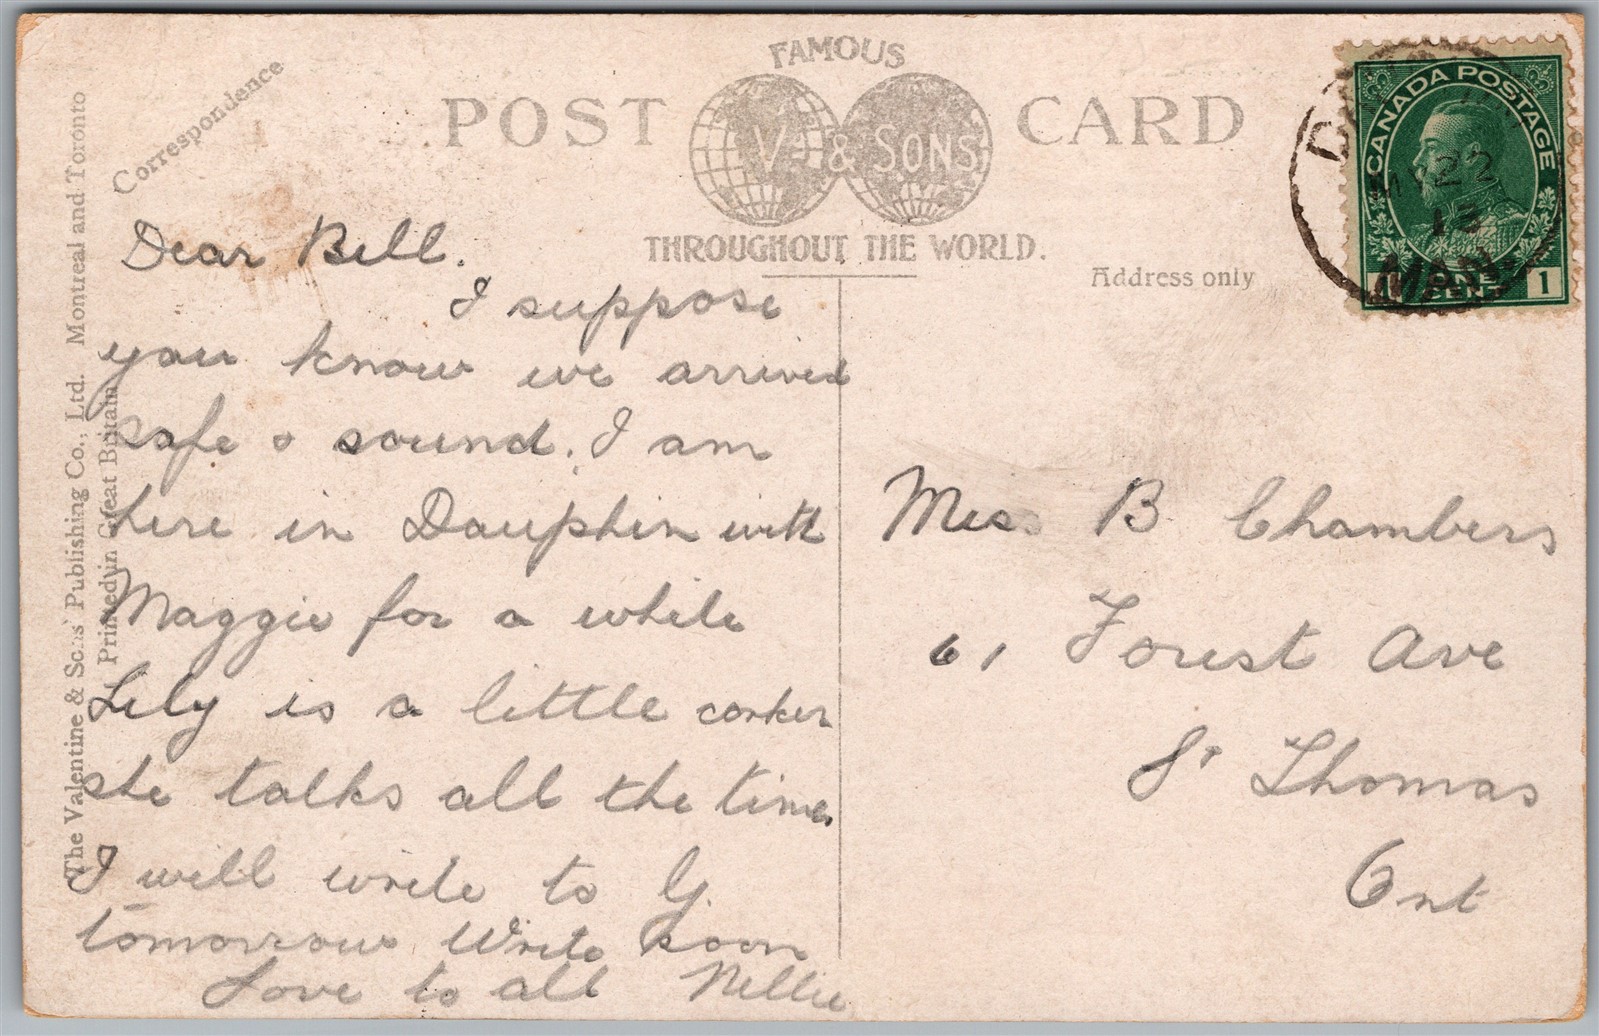 FAMOUS
POST V. & SONS CARD
THROUGHOUT THE WORLD.
Correspondence
Address only
The Valentine & Sons' Publishing Co., Ltd. Montreal and Toronto
Printed in Great Britain
CANADA POSTAGE
1 ONE CENT 1
D
22
13
MAN
Dear Bell.
I suppose
you know we arrived
safe & sound. I am
here in Dauphin with
Maggie for a while
Lily is a little corker
she talks all the time.
I will write to G.
tomorrow Write soon
Love to all Nellie
Miss B Chambers
61 Forest Ave
St Thomas
Ont